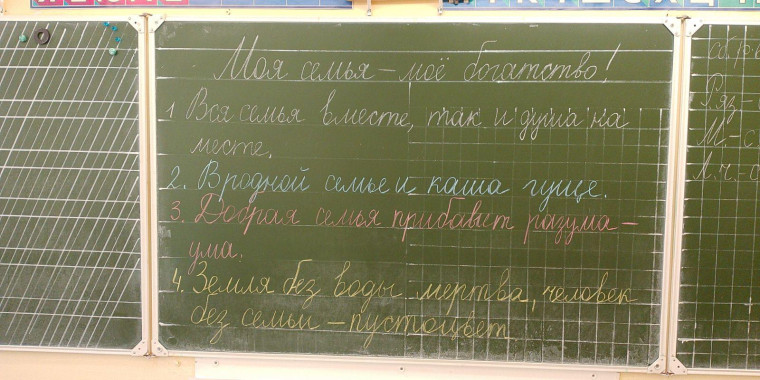 Моя семья – моё богатство!
1 Вся семья вместе, так и душа на
месте.
2. В родной семье и каша гуще.
3. Добрая семья прибавит разума –
ума.
4. Земля без воды мертва, человек
без семьи – пустоцвет